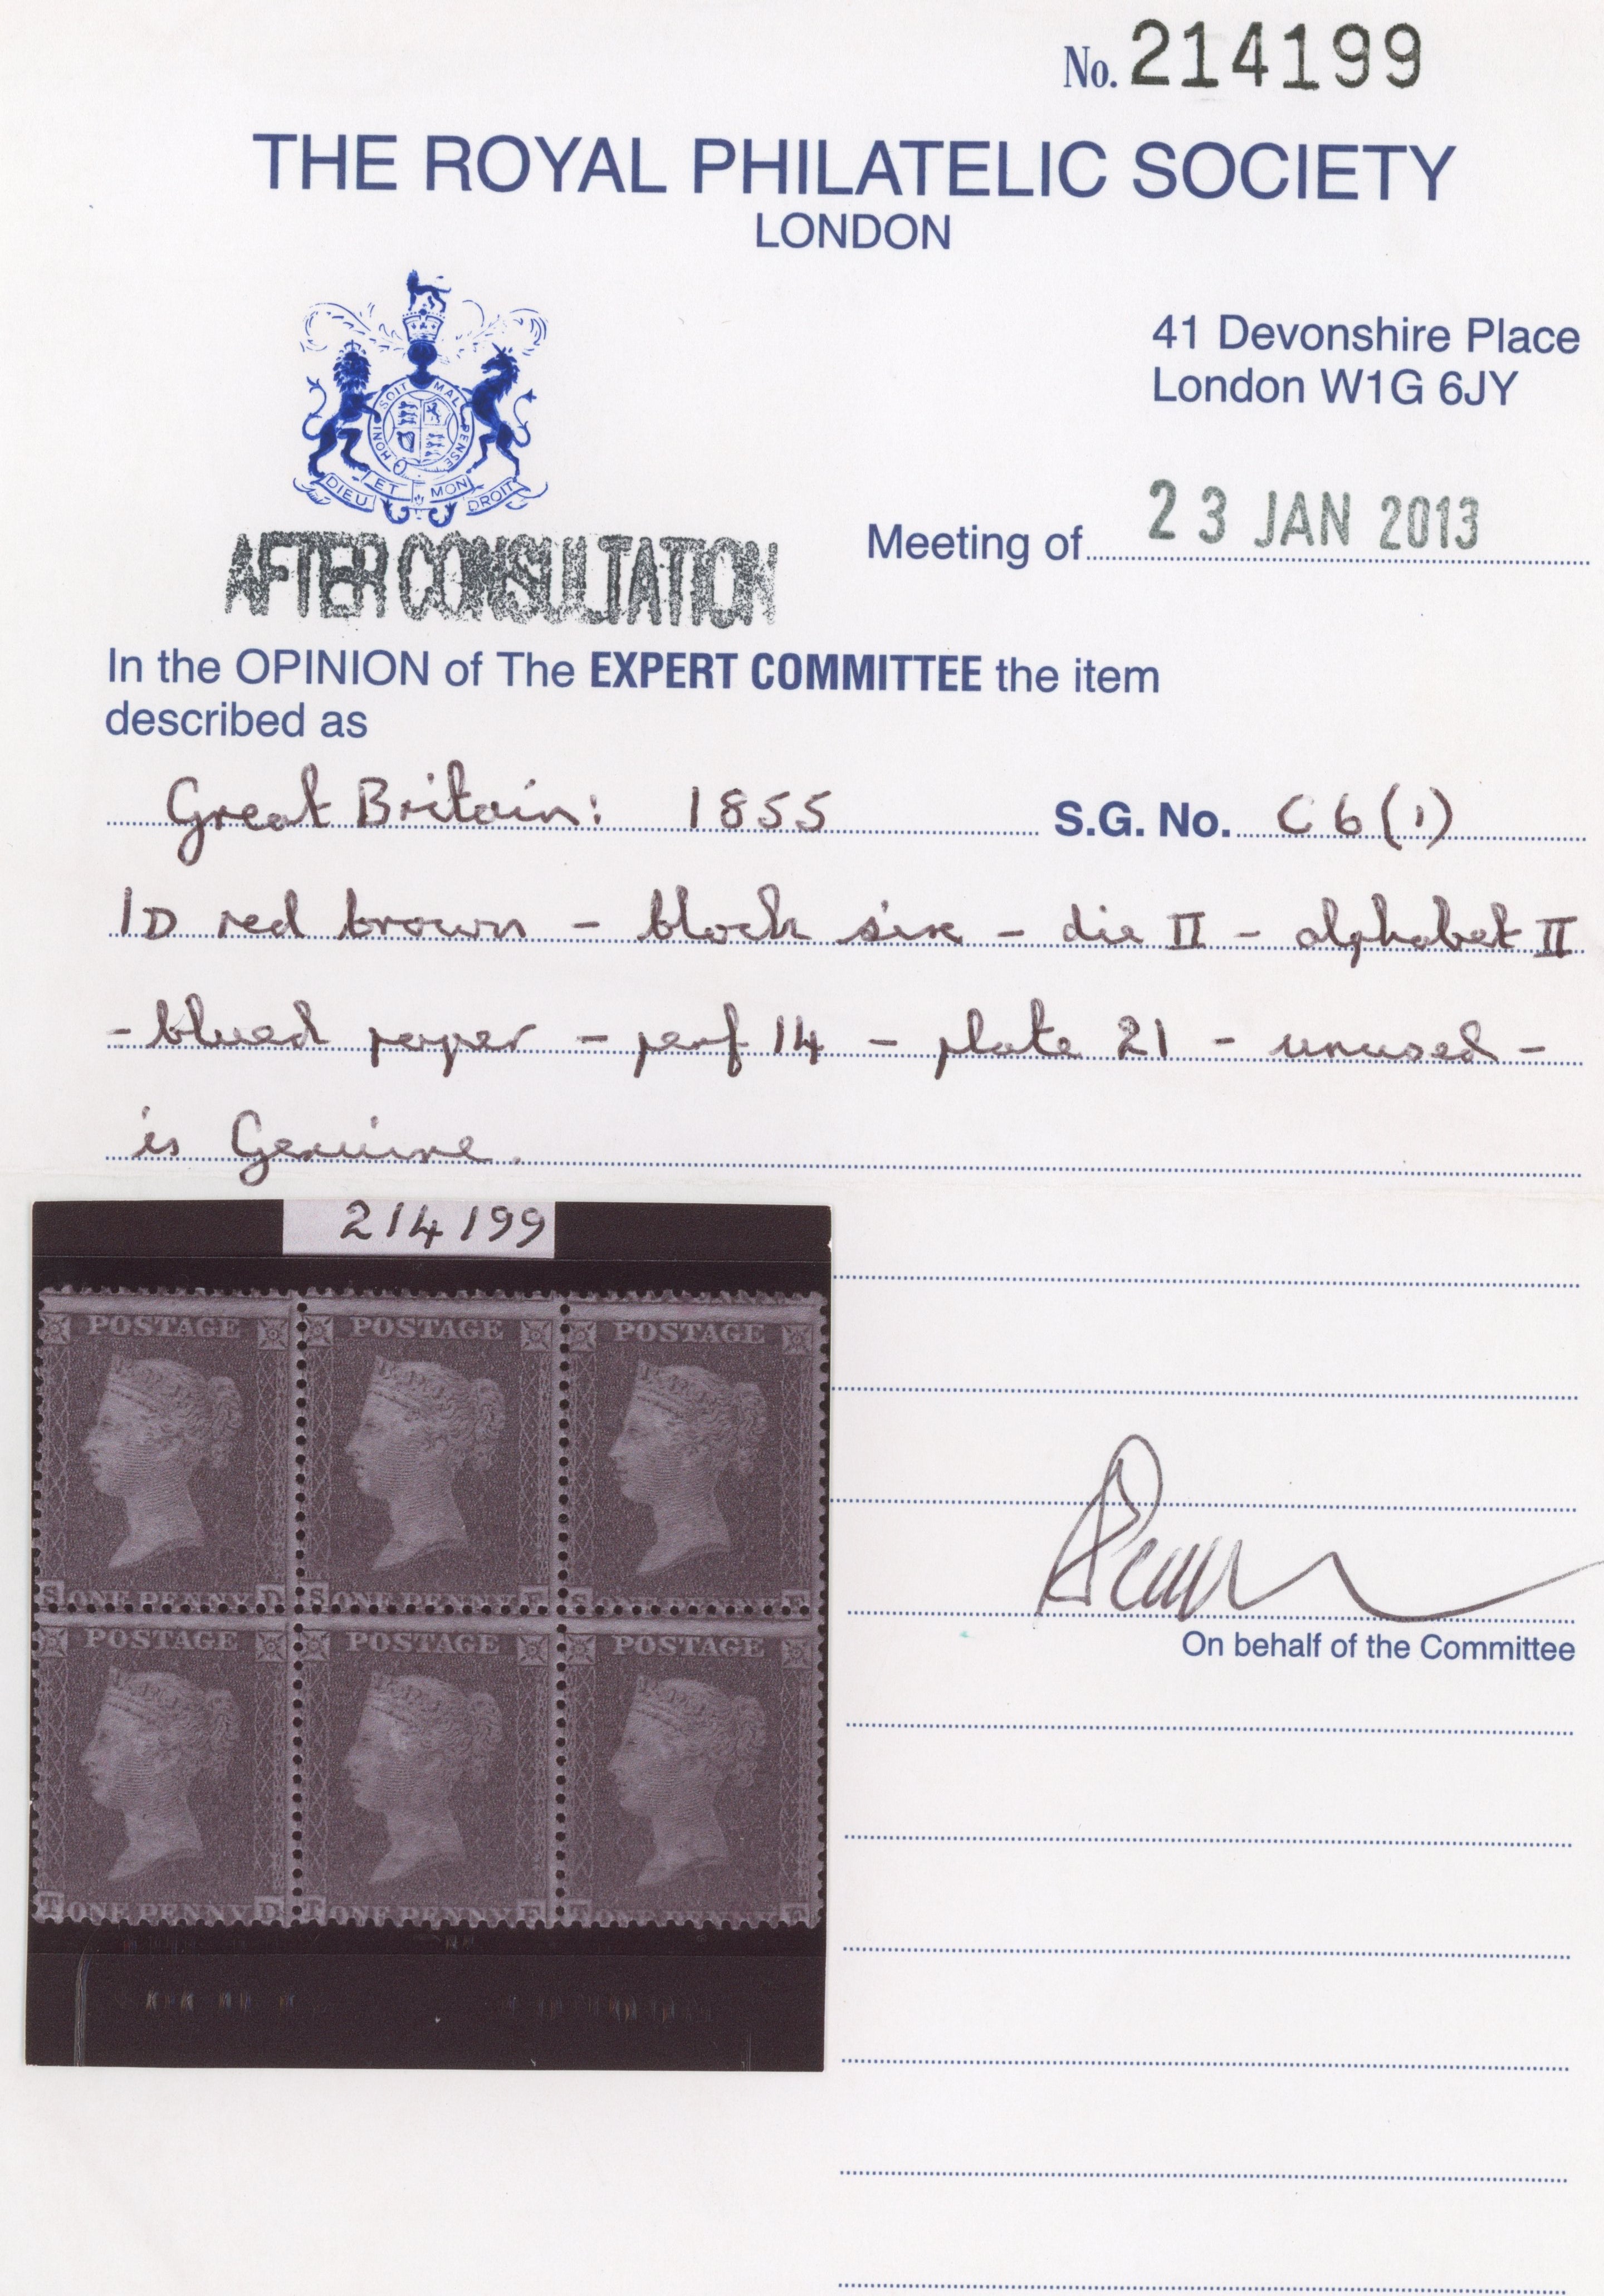 No. 214199
THE ROYAL PHILATELIC SOCIETY
LONDON
41 Devonshire Place
London W1G 6JY
HONI SOIT MAL PENSE
DIEU ET MON DROIT
AFTER CONSULTATION
Meeting of 23 JAN 2013
In the OPINION of The EXPERT COMMITTEE the item
described as
Great Britain: 1855 S.G. No. C6(1)
1D red brown - block six - die II - alphabet II
- blued paper - perf 14 - plate 21 - unused -
is Genuine.
214199
POSTAGE POSTAGE POSTAGE
S ONE PENNY D S ONE PENNY E S ONE PENNY F
POSTAGE POSTAGE POSTAGE
T ONE PENNY D T ONE PENNY E T ONE PENNY F
On behalf of the Committee